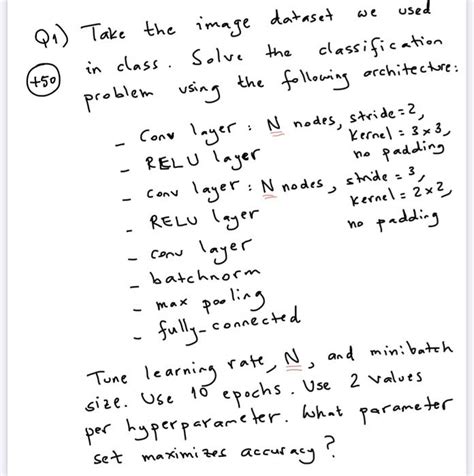 Q1) Take the image dataset we used
+50 in class. Solve the classification
problem using the following architecture:
- Conv layer: N nodes, stride=2,
kernel = 3x3,
no padding
- RELU layer
- conv layer: N nodes, stride = 3,
kernel = 2x2,
no padding
- RELU layer
- conv layer
- batchnorm
- max pooling
- fully-connected
Tune learning rate, N, and minibatch
size. Use 10 epochs. Use 2 values
per hyperparameter. What parameter
set maximizes accuracy?